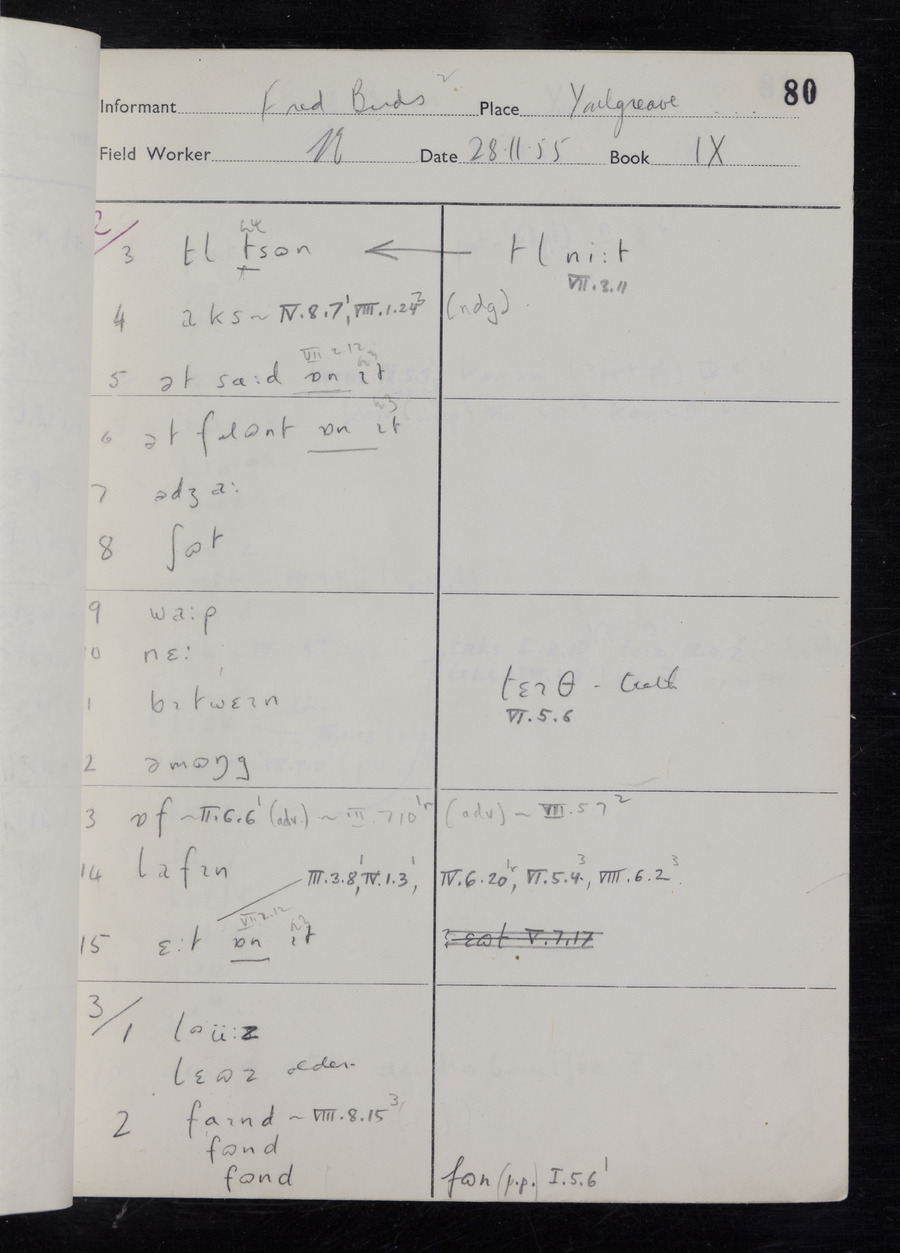 80
Informant Fred Birds² Place Youlgreave
Field Worker N Date 28.11.55 Book IX
2/
3 tl tsɷn ← tl ni:t
VII.3.11
4 aks ~ IV.8.7¹, VIII.1.24³ (ndg)
VII 2 12
5 ət sa:d ɒn ɪt
6 ət fɹɷnt ɒn ɪt
7 ədʒa:
8 ʃɷt
9 wa:p
10 nɛ:
1 bɪtwɛɪn tɛɪθ - truth
VI.5.6
2 əmɷŋg
3 ɒf ~ II.6.6¹ (adv.) ~ III.7.10¹ʳ (adv) ~ VIII.5.7²
14 lafɪn III.3.8¹, IV.1.3¹, IV.6.20¹ʳ, VI.5.4³, VIII.6.2³
VII.2.12
15 ɛ:t ɒn ɪt ɛɷt V.7.17
3/
1 lɷü:z
lɛɷz older
2 faɪnd ~ VIII.8.15³
fɷnd
fɷnd fɷn (p.p.) I.5.6¹